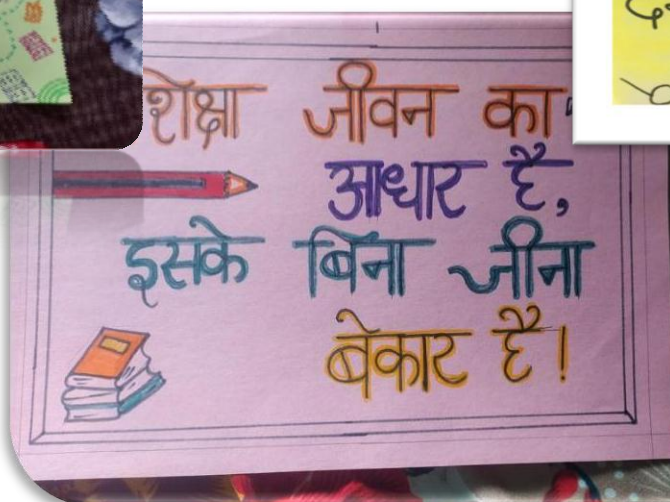 शिक्षा जीवन का
आधार है,
इसके बिना जीना
बेकार है!